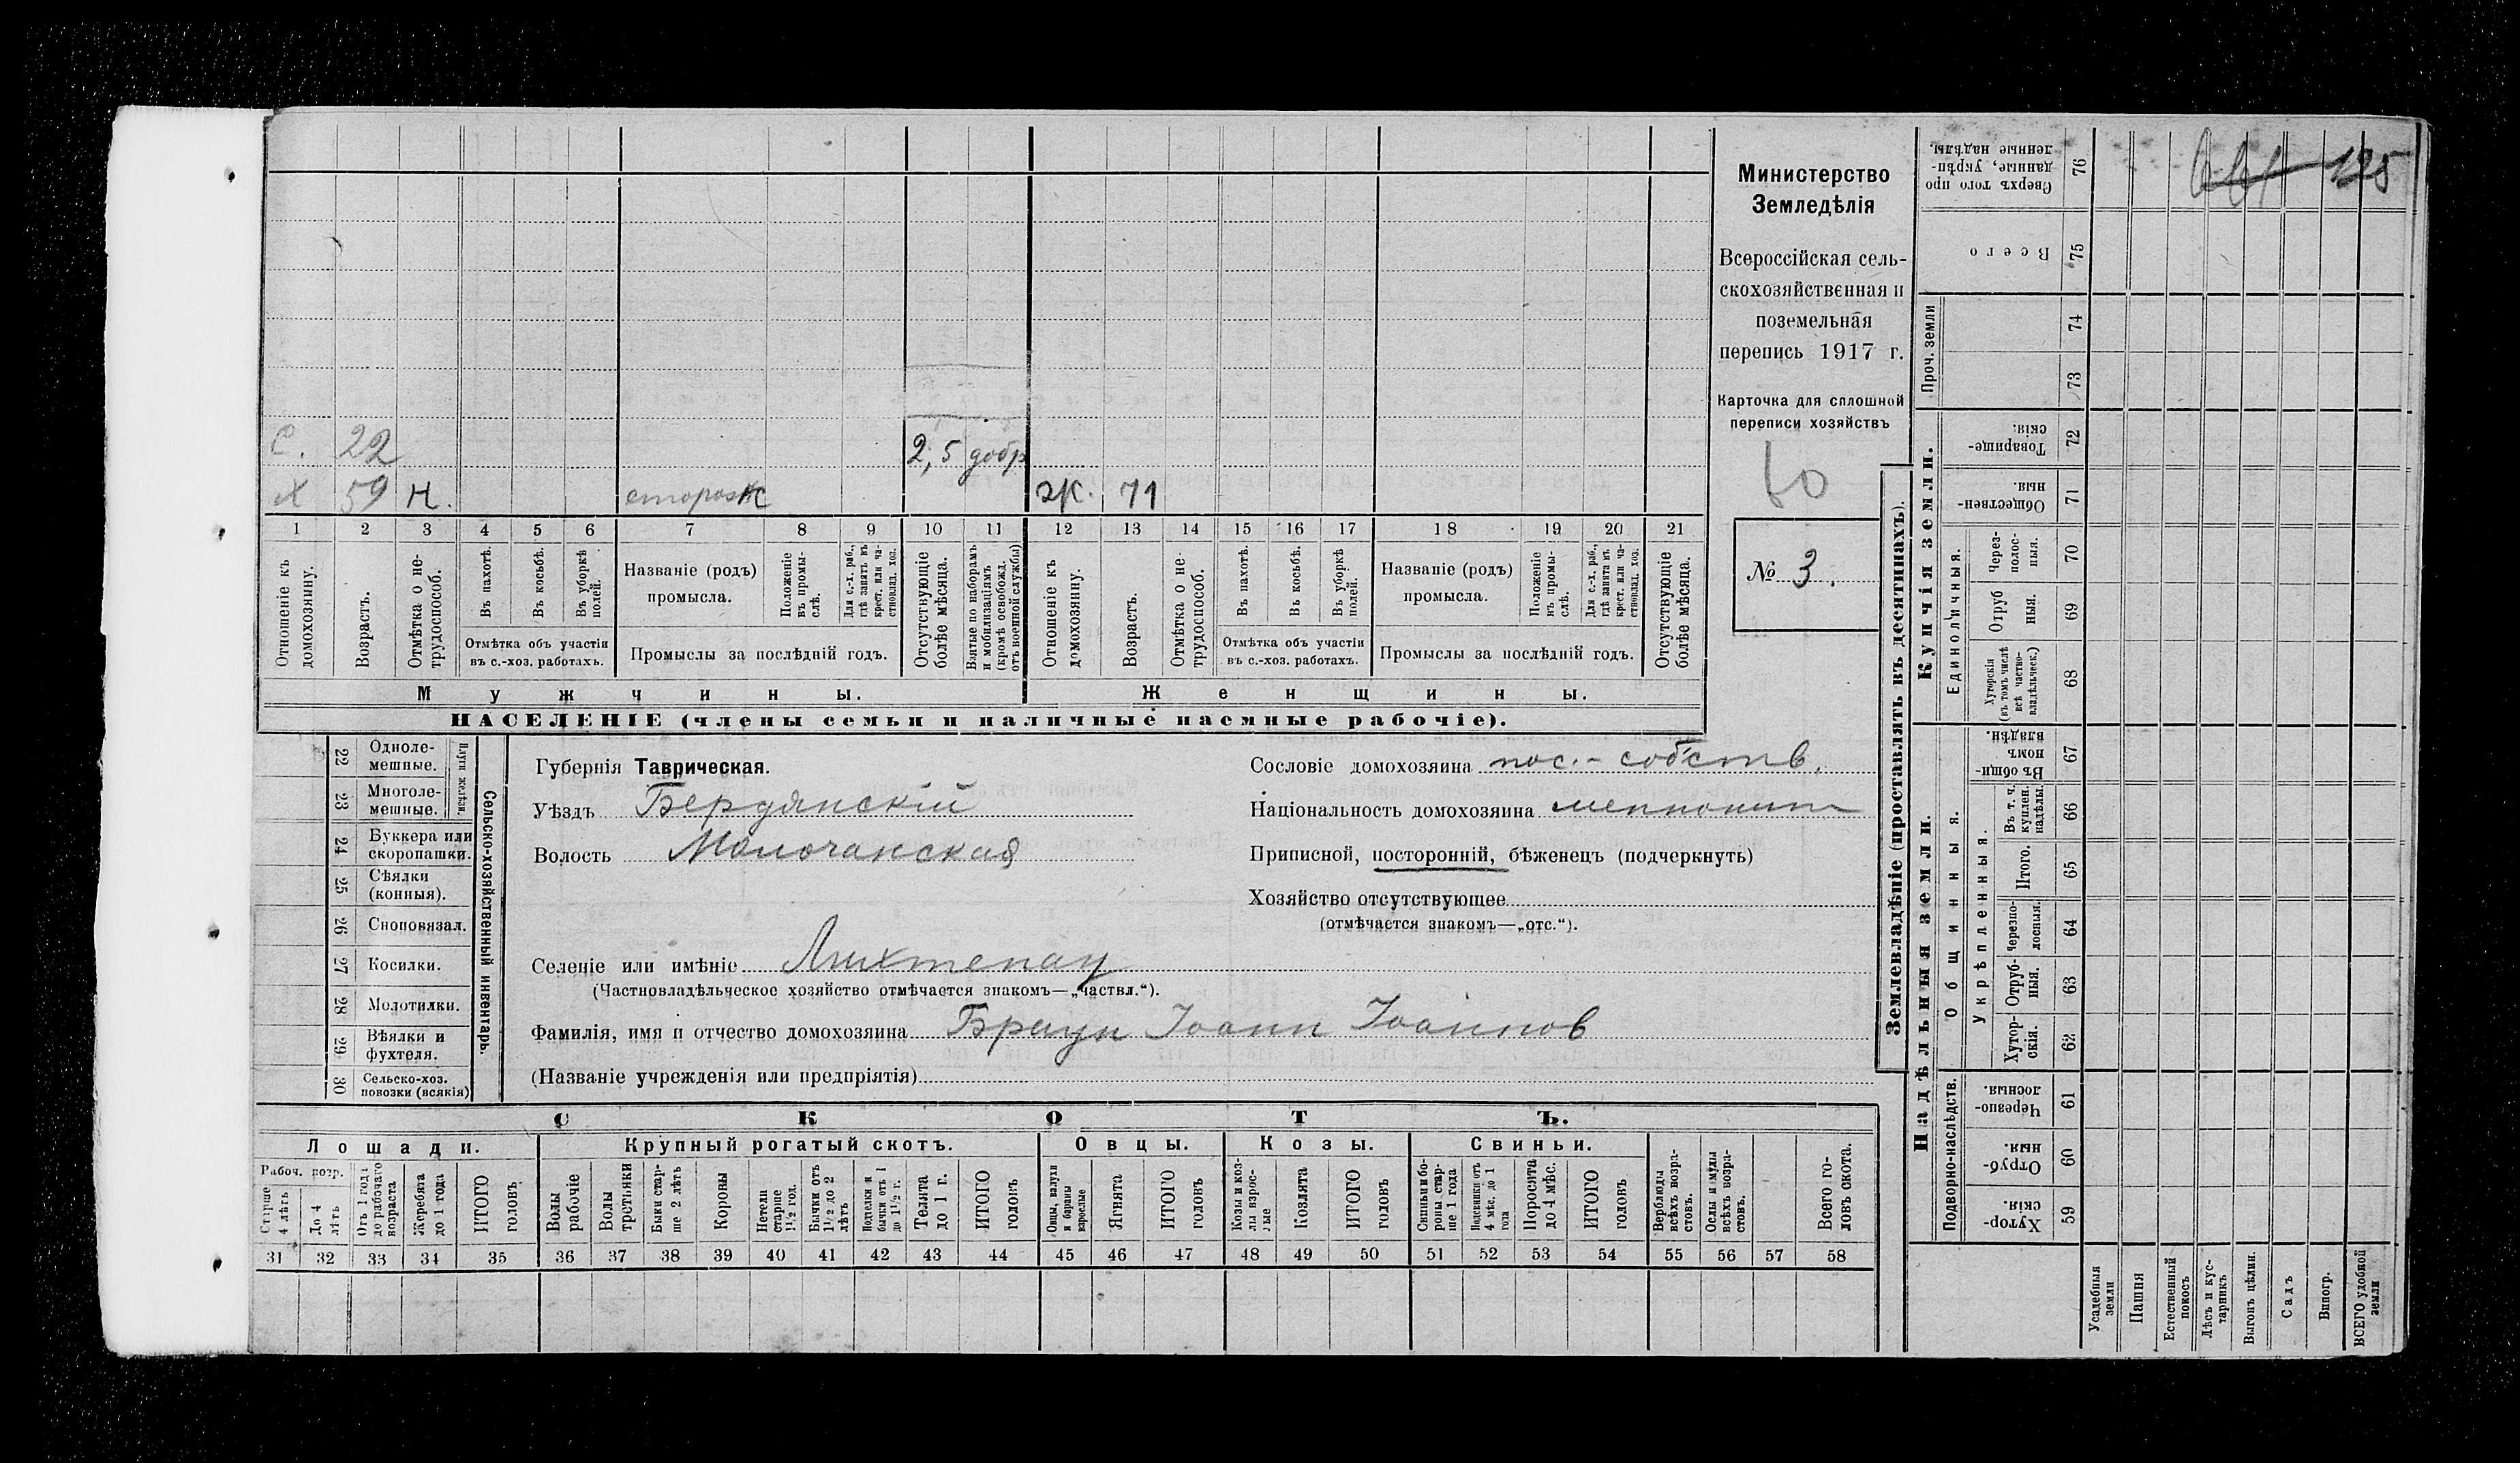 С. 22 2,5 добр
Х 59 Н. сторож Ж. 71
1 2 3 4 5 6 7 8 9 10 11 12 13 14 15 16 17 18 19 20 21
Отношеніе къ домохозяину.
Возрастъ.
Отмѣтка о не-трудоспособ.
Въ пахотѣ.
Въ косьбѣ.
Въ уборкѣ полей.
Отмѣтка объ участіи
въ с.-хоз. работахъ.
Названіе (родъ)
промысла.
Положеніе въ промы-слѣ.
Для с.-х. раб., гдѣ занятъ въ крест. или ча-стновлад. хоз.
Промыслы за послѣдній годъ.
Отсутствующіе болѣе мѣсяца.
Взятые по наборамъ и мобилизаціямъ (кромѣ освобожд. отъ военной службы)
Отношеніе къ домохозяину.
Возрастъ.
Отмѣтка о не-трудоспособ.
Въ пахотѣ.
Въ косьбѣ.
Въ уборкѣ полей.
Отмѣтка объ участіи
въ с.-хоз. работахъ.
Названіе (родъ)
промысла.
Положеніе въ промы-слѣ.
Для с.-х. раб., гдѣ занята въ крест. или ча-стновлад. хоз.
Промыслы за послѣдній годъ.
Отсутствующіе болѣе мѣсяца.
Мужчины.
Женщины.
НАСЕЛЕНІЕ (члены семьи и наличные наемные рабочіе).
Министерство
Земледѣлія
Всероссійская сель-
скохозяйственная и
поземельная
перепись 1917 г.
Карточка для сплошной
переписи хозяйствъ
60
№ 3.
Сельско-хозяйственный инвентарь.
Плуги желѣзн.
22 Одноле-
мешные.
23 Многоле-
мешные.
24 Буккера или
скоропашки.
25 Сѣялки
(конныя).
26 Сноповязал.
27 Косилки.
28 Молотилки.
29 Вѣялки и
фухтеля.
30 Сельско-хоз.
повозки (всякія)
Губернія Таврическая.
Уѣздъ Бердянскій
Волость Молочанская
Сословіе домохозяина пос.-собств.
Національность домохозяина меннонит
Приписной, посторонній, бѣженецъ (подчеркнуть)
Хозяйство отсутствующее
(отмѣчается знакомъ—„отс.“).
Селеніе или имѣніе Лихтенау
(Частновладѣльческое хозяйство отмѣчается знакомъ—„частвл.“).
Фамилія, имя и отчество домохозяина Браун Іоанн Іоаннов
(Названіе учрежденія или предпріятія)
СКОТЪ.
Лошади. Крупный рогатый скотъ. Овцы. Козы. Свиньи.
Рабоч. возр.
Старше 4 лѣтъ
До 4 лѣтъ
Отъ 1 года до рабочаго возраста
Жеребята до 1 года
ИТОГО головъ
Волы рабочіе
Волы третьяки
Быки стар-ше 2 лѣтъ
Коровы
Нетели старше 1½ год.
Бычки отъ 1½ до 2 лѣтъ
Подтелки и бычки отъ 1 до 1½ г.
Телята до 1 г.
ИТОГО головъ
Овцы, валухи и бараны взрослые
Ягнята
ИТОГО головъ
Козы и коз-лы взрос-лые
Козлята
ИТОГО головъ
Свиньи и бо-ровы стар-ше 1 года
Подсвинки отъ 4 мѣс. до 1 года
Поросята до 4 мѣс.
ИТОГО головъ
Верблюды всѣхъ возра-стовъ.
Ослы и мулы всѣхъ возра-стовъ.
Всего го-ловъ скота.
31 32 33 34 35 36 37 38 39 40 41 42 43 44 45 46 47 48 49 50 51 52 53 54 55 56 57 58
Землевладѣніе (проставлять въ десятинахъ).
Купчія земли.
Надѣльныя земли.
Проч. земли
Единоличныя.
Общинныя.
Укрѣпленныя.
Подворно-наслѣдств.
Сверхъ того про
данные, укрѣп-
ленные надѣлы. 76
Всего 75
74
73
Товарище-
скія. 72
Обществен-
ныя. 71
Через-полос-ныя. 70
Отруб ныя. 69
Хуторскія (въ томъ числѣ всѣ частно-владѣльческ.) 68
Въ общин-
номъ
владѣн. 67
Въ т. ч. куплен. надѣлы. 66
Итого. 65
Черезпо-лосныя. 64
Отруб-ныя. 63
Хутор-скія. 62
Черезпо-
лосныя. 61
Отруб-
ныя. 60
Хутор-
скія. 59
Усадебныя земли
Пашня
Естественный покосъ
Лѣсъ и кус-тарникъ
Выгонъ цѣлин.
Садъ
Виногр.
ВСЕГО удобной земли
125